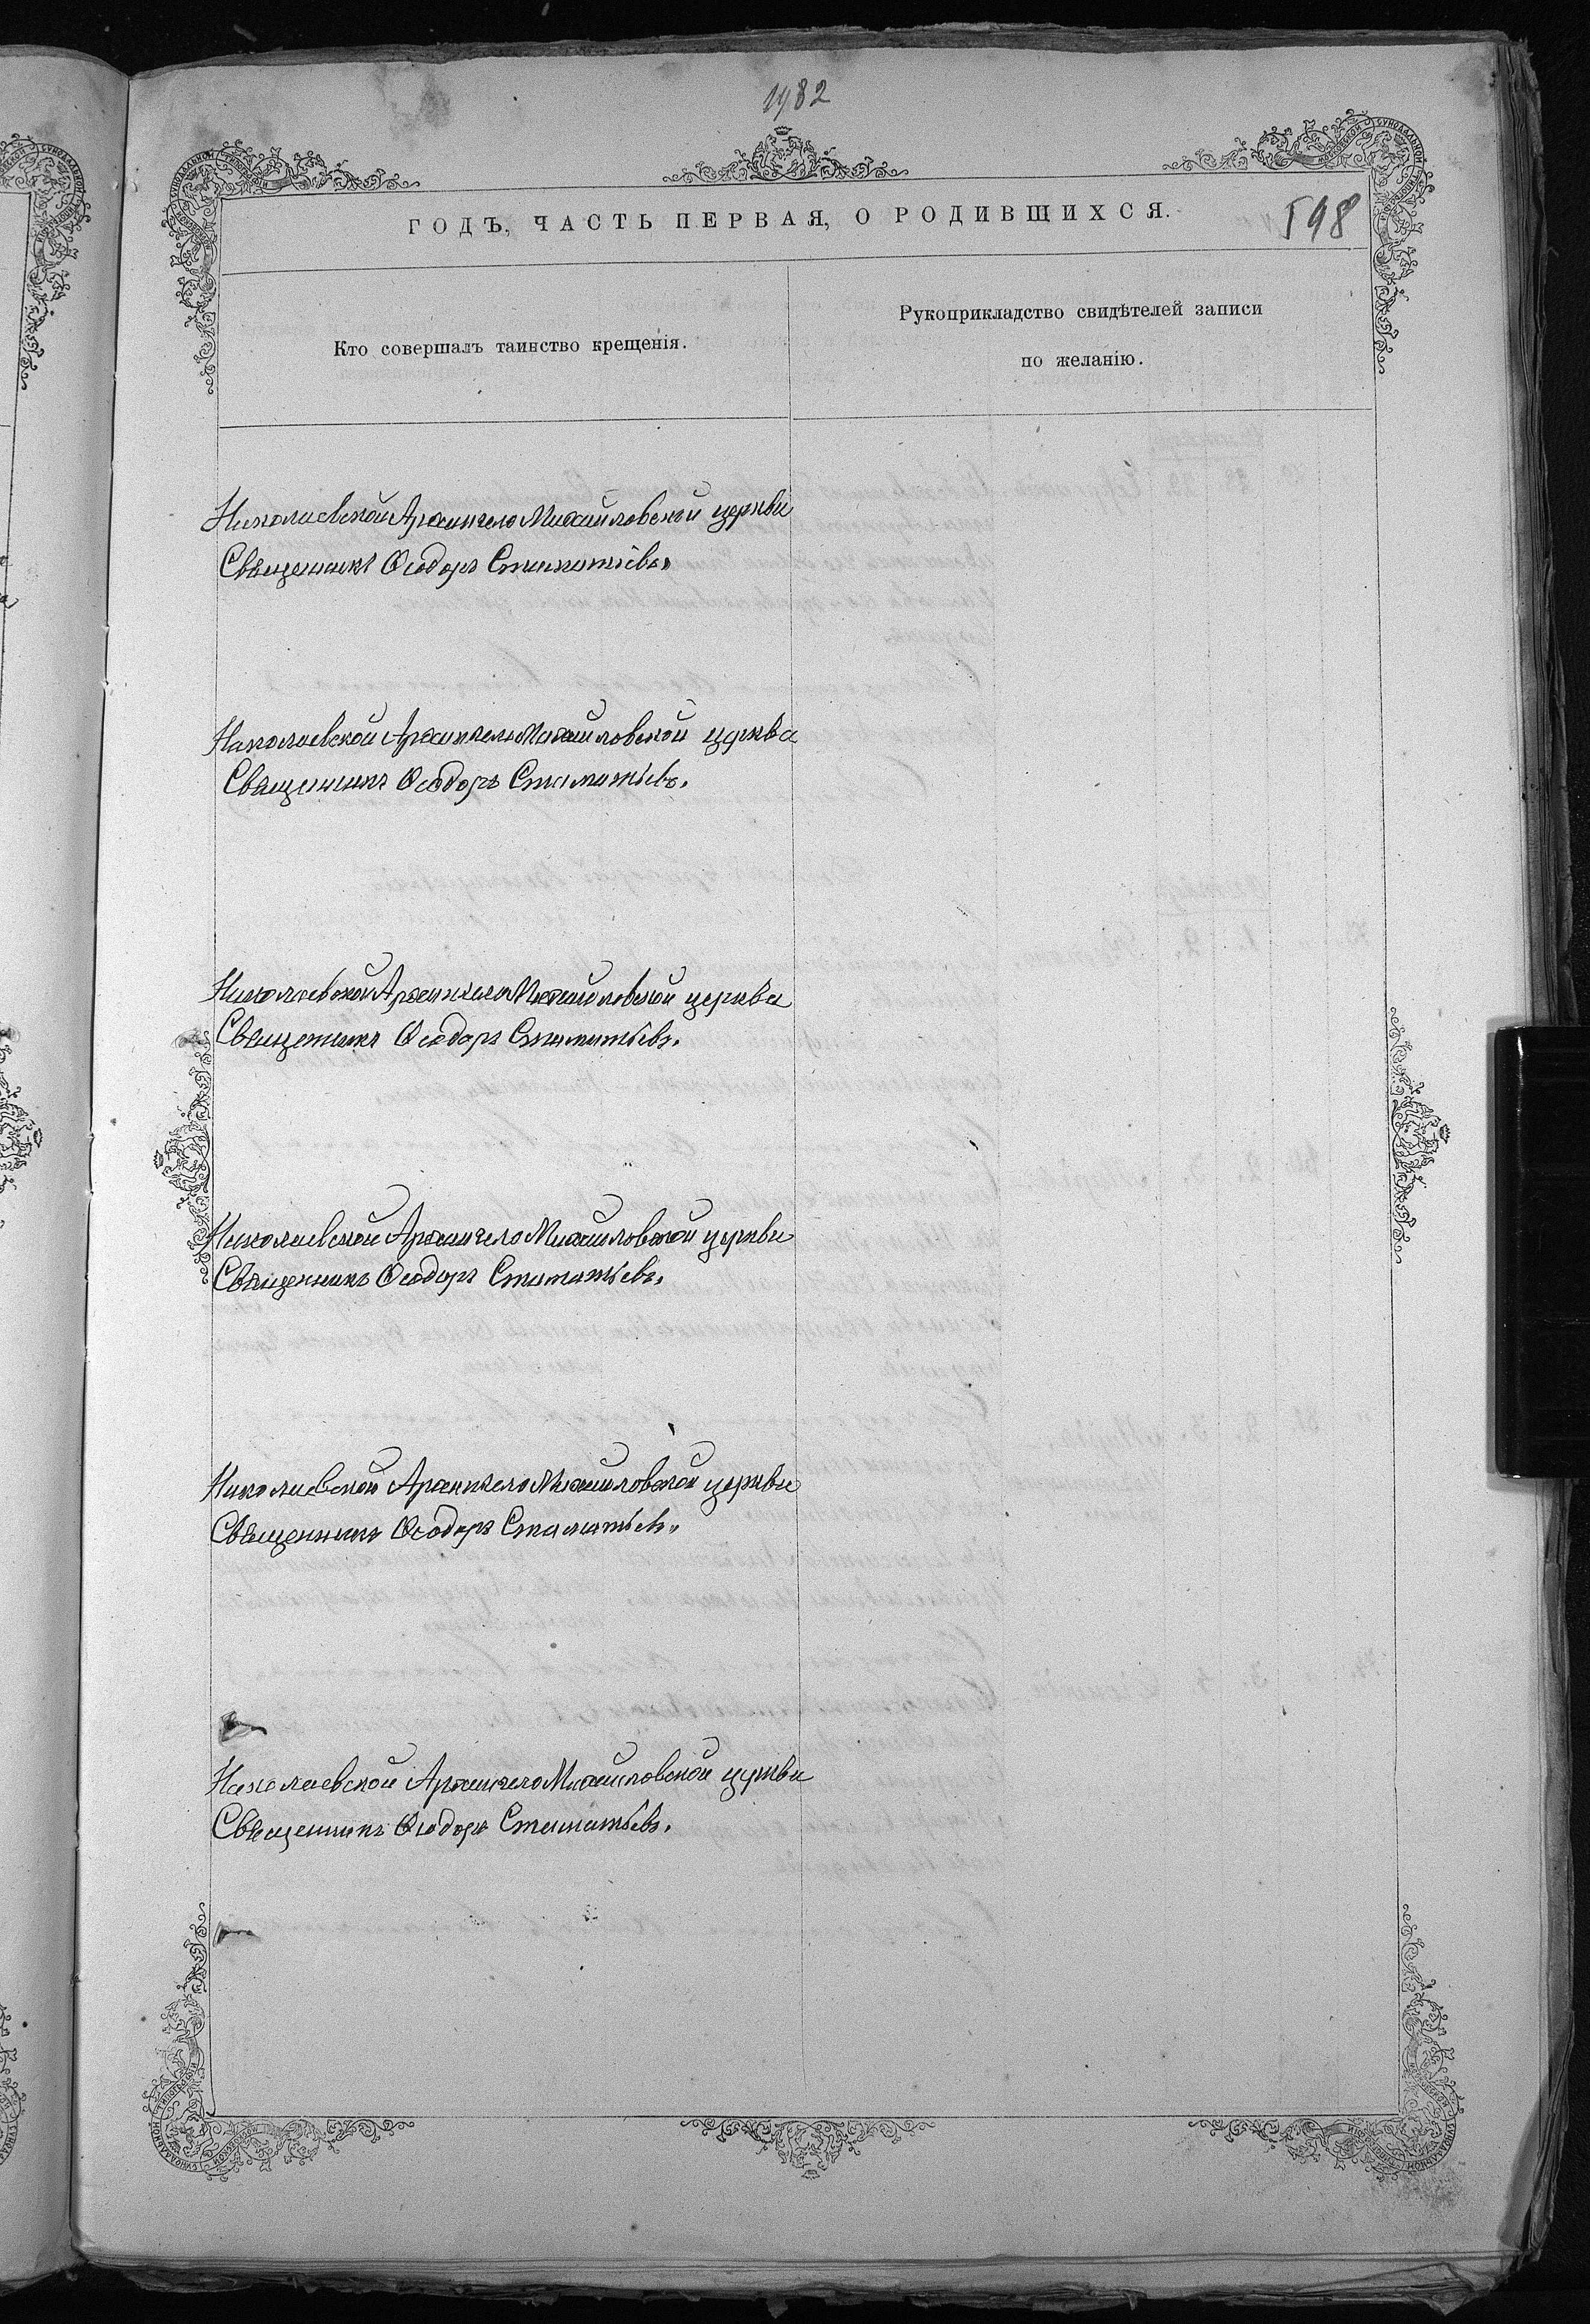 1982
ГОДЪ, ЧАСТЬ ПЕРВАЯ, О РОДИВШИХСЯ.
598
Кто совершалъ таинство крещенія.
Рукоприкладство свидѣтелей записи
по желанію.
Николаевской Архангело Михайловской церкви
Священникъ Ѳеодоръ Стаматьевъ.
Николаевской Архангело Михайловской церкви
Священникъ Ѳеодоръ Стаматьевъ.
Николаевской Архангело Михайловской церкви
Священникъ Ѳеодоръ Стаматьевъ.
Николаевской Архангело Михайловской церкви
Священникъ Ѳеодоръ Стаматьевъ.
Николаевской Архангело Михайловской церкви
Священникъ Ѳеодоръ Стаматьевъ.
Николаевской Архангело Михайловской церкви
Священникъ Ѳеодоръ Стаматьевъ.